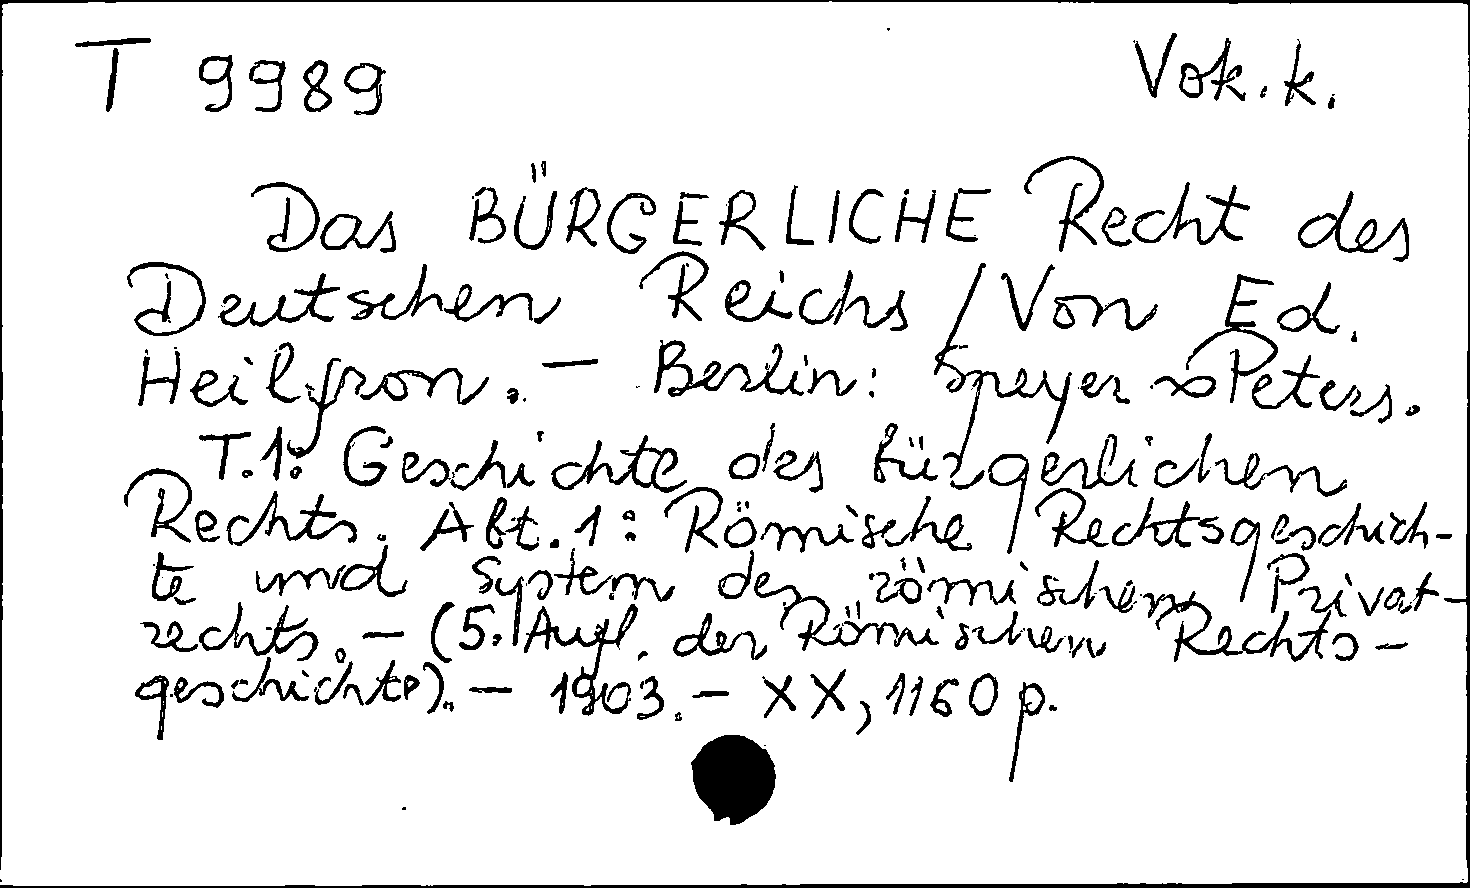 T 9989 Vok. k.
Das BÜRGERLICHE Recht des
Deutschen Reichs / Von Ed.
Heilfron. – Berlin: Speyer & Peters.
T.1: Geschichte des bürgerlichen
Rechts. Abt. 1: Römische Rechtsgeschich-
te und System des römischen Privat-
rechts. – (5. Aufl. der Römischen Rechts-
geschichte). – 1903. – XX, 1160 p.